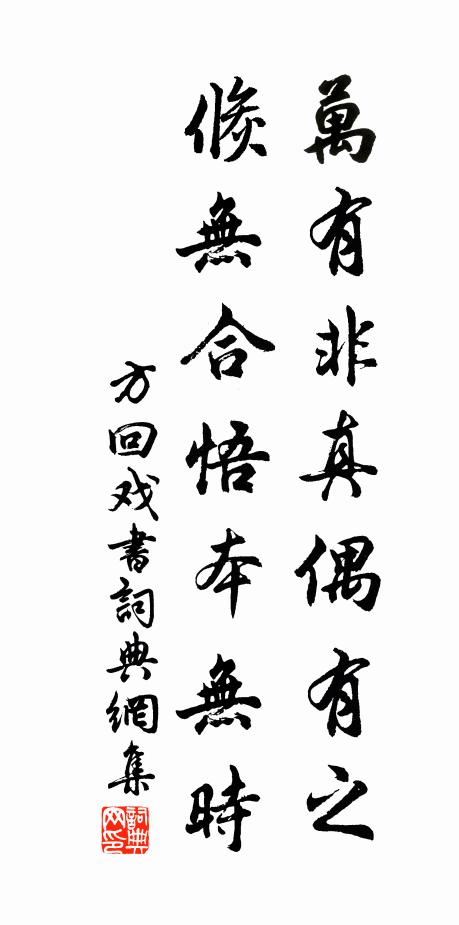 萬有非真偶有之
倐無合悟本無時
方回戏書詞典網集
詞典网印